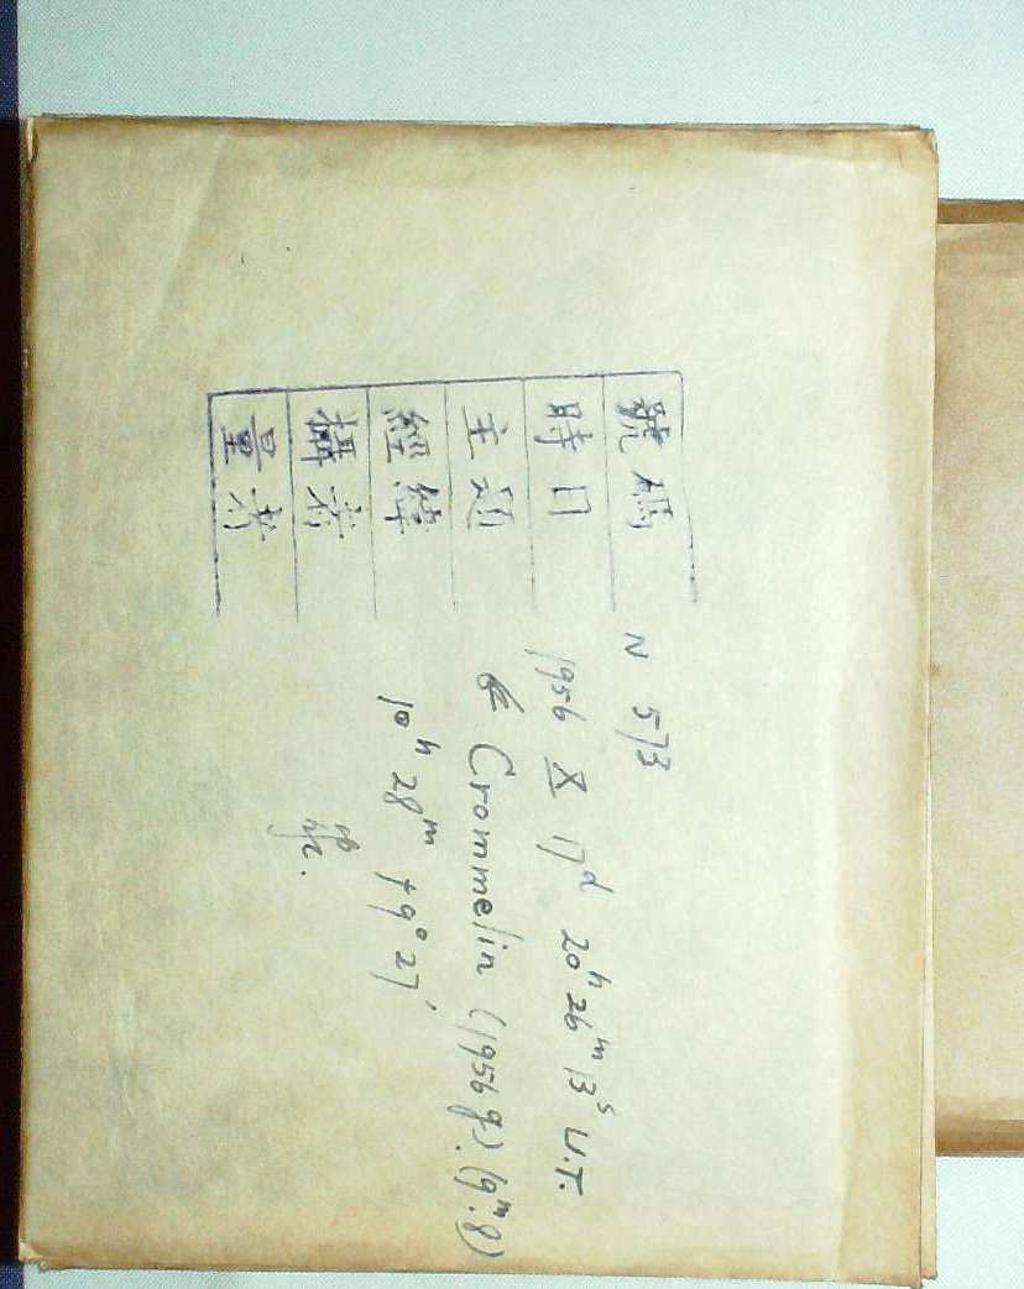 號碼 N 573
時日 1956 X 17ᵈ 20ʰ 26ᵐ 13ˢ U.T.
主題 Crommelin (1956 g). (9ᵐ.8)
經緯 10ʰ 28ᵐ +9° 27′
攝者
量者